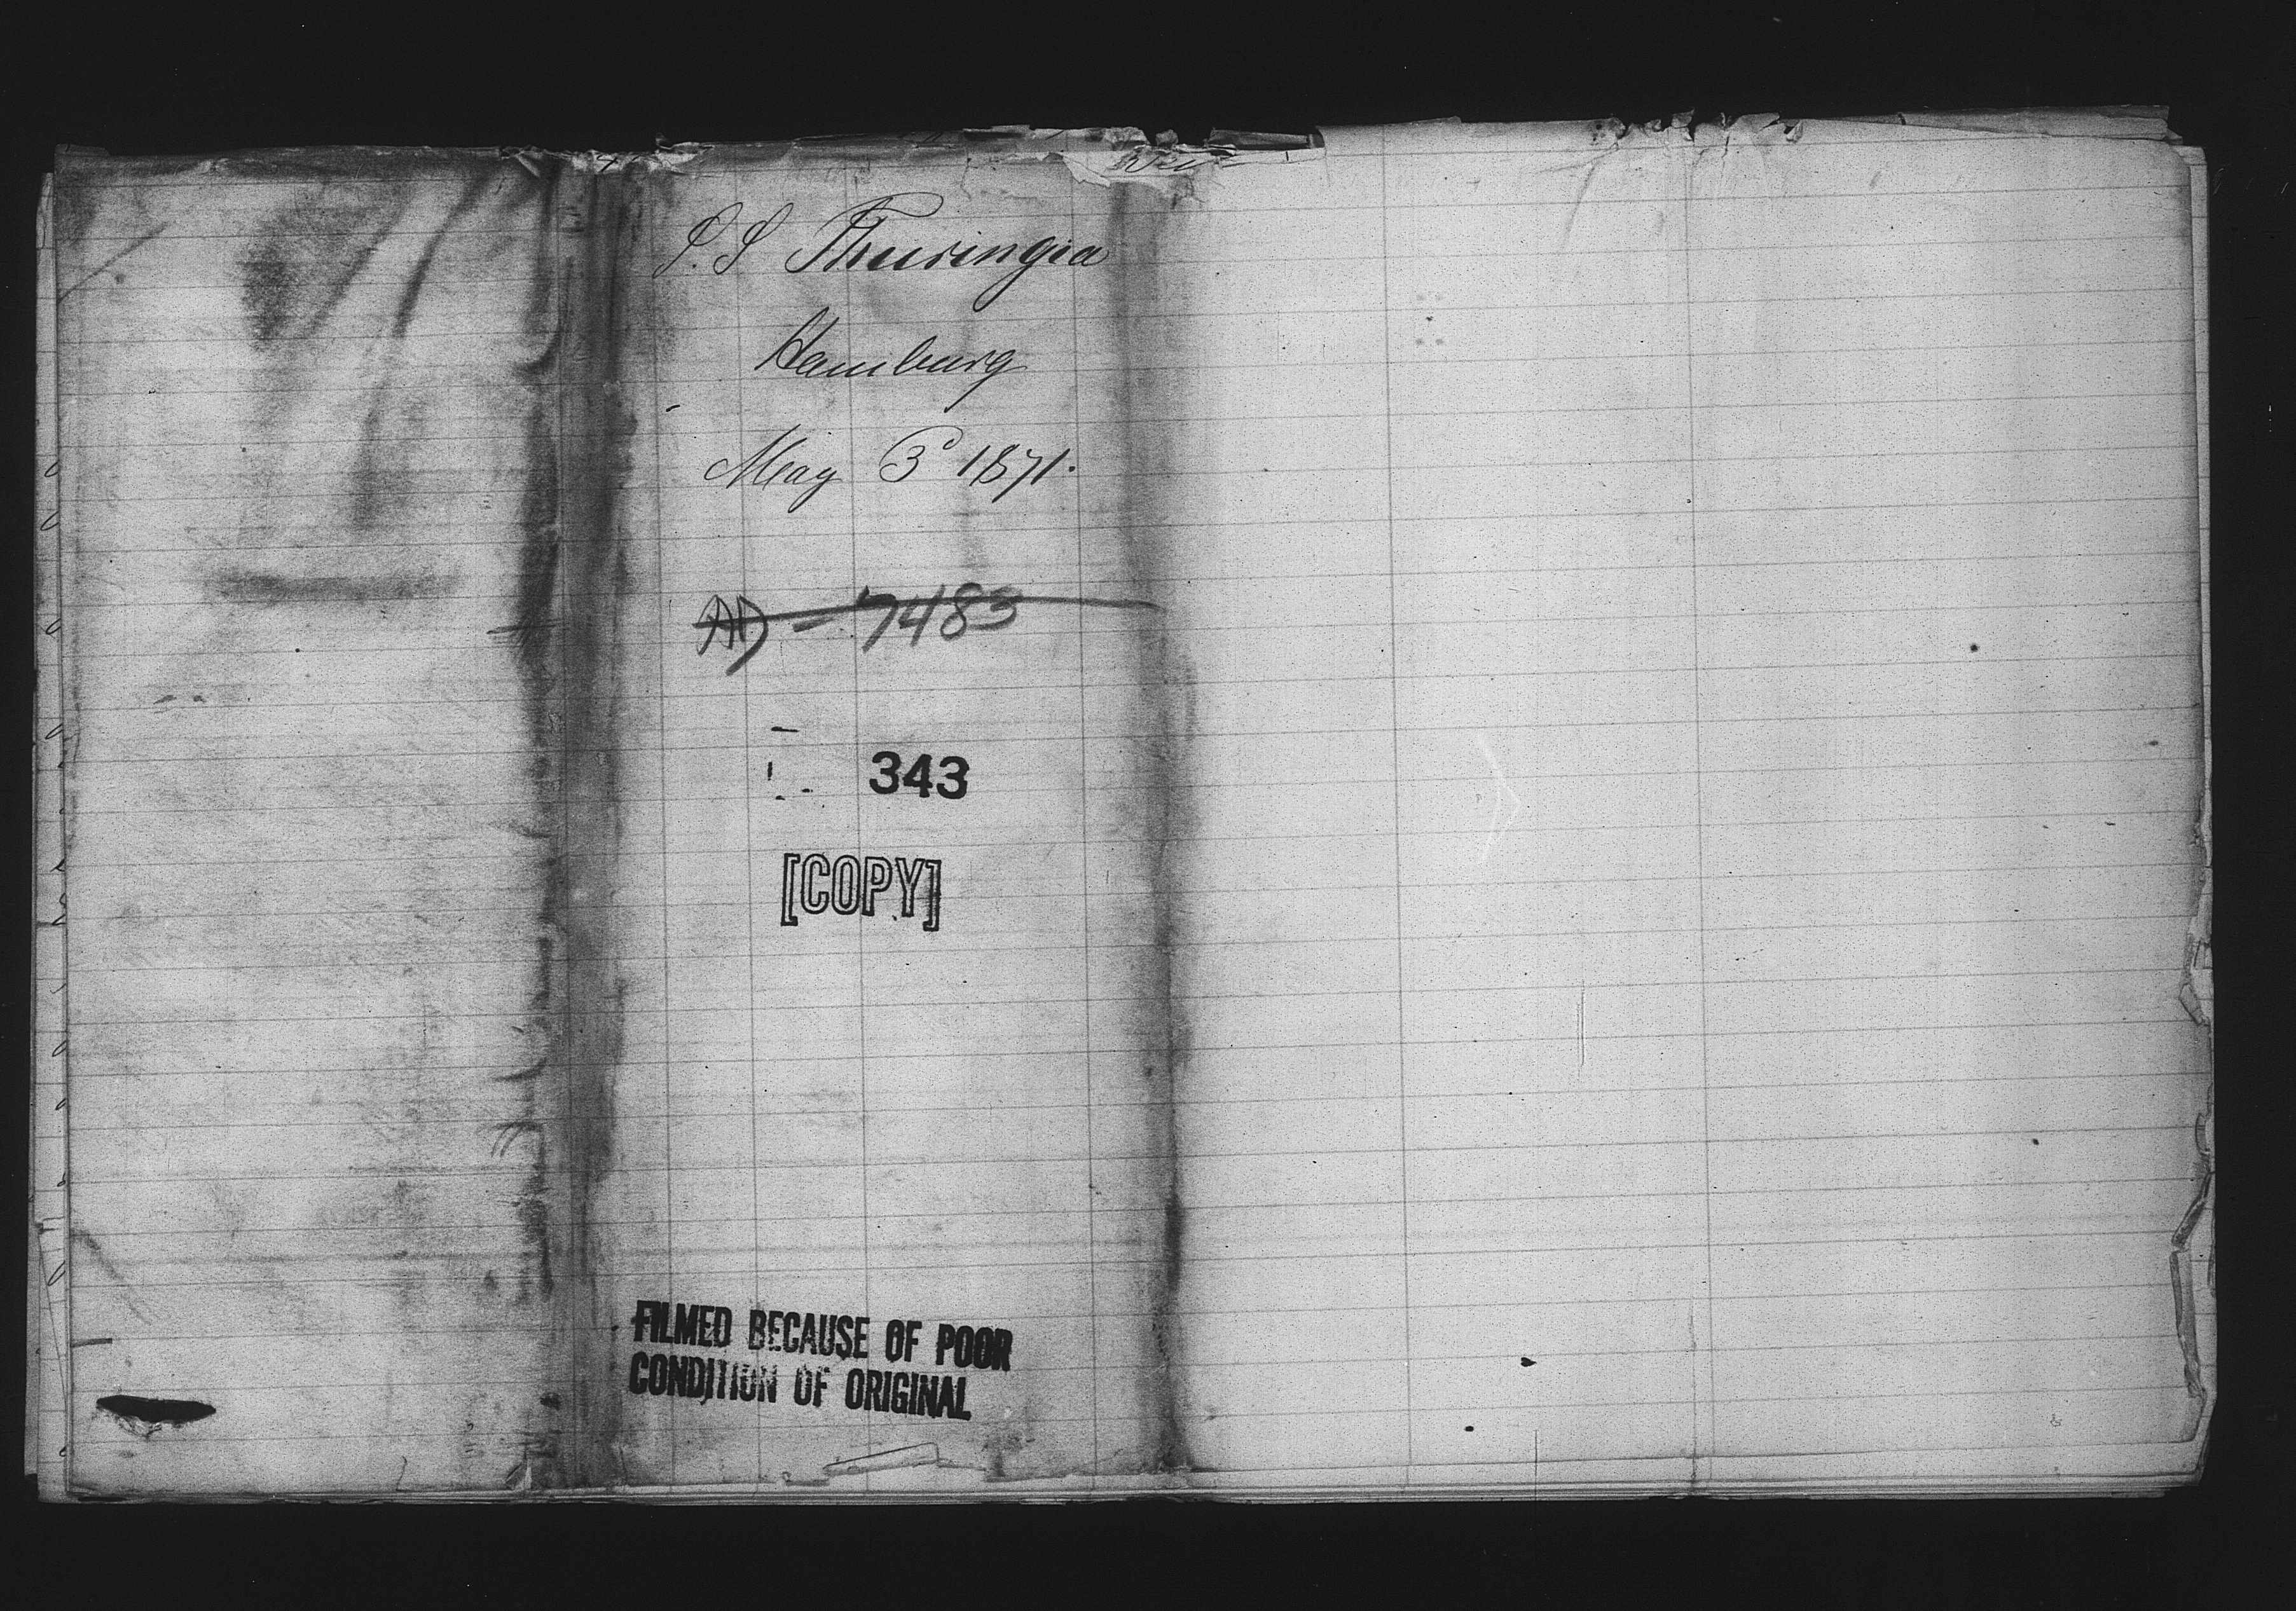 S.S Thuringia
Hamburg
May 3d 1871.
AD - 7485
343
[COPY]
FILMED BECAUSE OF POOR
CONDITION OF ORIGINAL